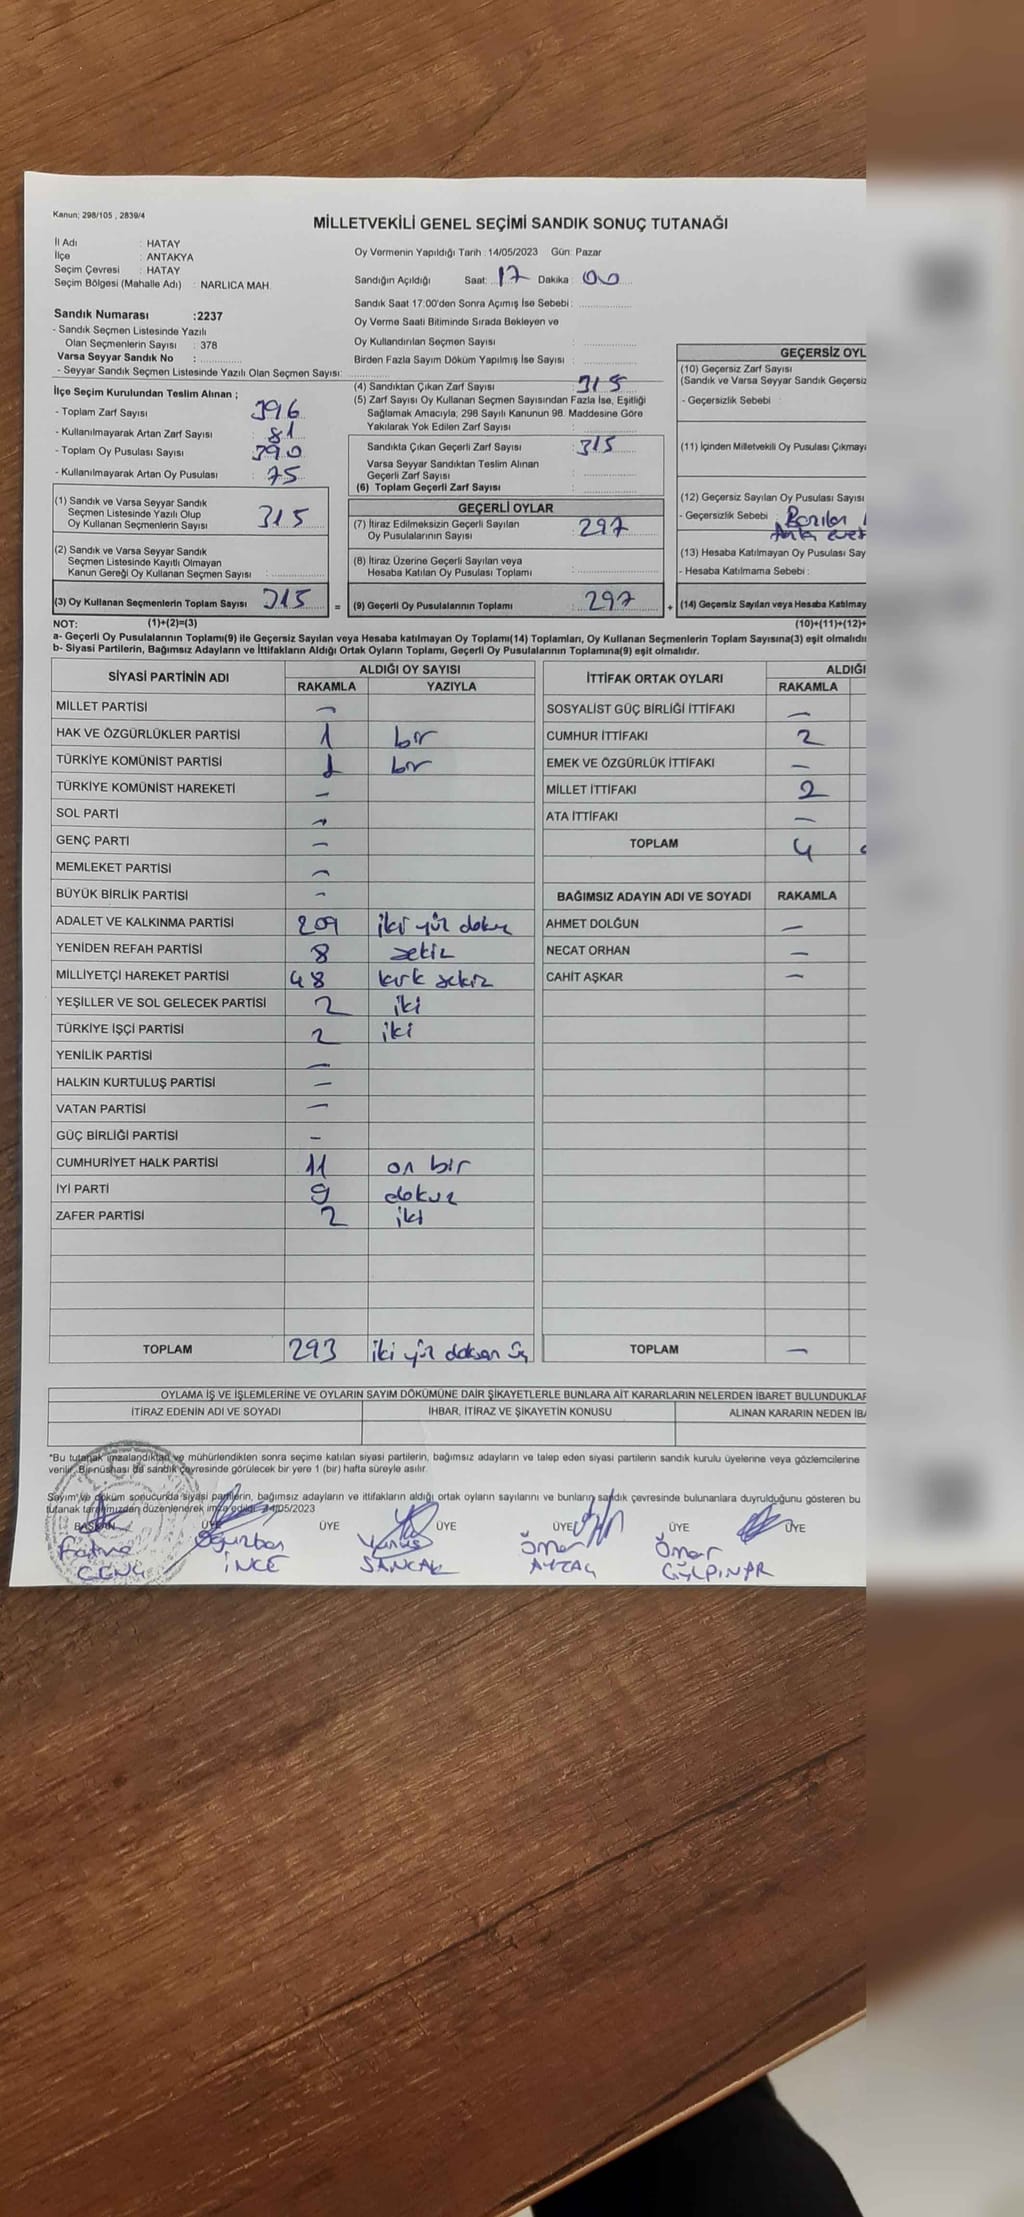 Kanun; 298/105 , 2839/4
MİLLETVEKİLİ GENEL SEÇİMİ SANDIK SONUÇ TUTANAĞI
İl Adı : HATAY
İlçe : ANTAKYA
Seçim Çevresi : HATAY
Seçim Bölgesi (Mahalle Adı) : NARLICA MAH.
Sandık Numarası :2237
- Sandık Seçmen Listesinde Yazılı
Olan Seçmenlerin Sayısı : 378
Varsa Seyyar Sandık No :
- Seyyar Sandık Seçmen Listesinde Yazılı Olan Seçmen Sayısı:
Oy Vermenin Yapıldığı Tarih : 14/05/2023 Gün: Pazar
Sandığın Açıldığı Saat: 17 Dakika : 00
Sandık Saat 17:00'den Sonra Açımış İse Sebebi :
Oy Verme Saati Bitiminde Sırada Bekleyen ve
Oy Kullandırılan Seçmen Sayısı :
Birden Fazla Sayım Döküm Yapılmış İse Sayısı :
İlçe Seçim Kurulundan Teslim Alınan ;
- Toplam Zarf Sayısı : 396
- Kullanılmayarak Artan Zarf Sayısı : 81
- Toplam Oy Pusulası Sayısı : 390
- Kullanılmayarak Artan Oy Pusulası : 75
(1) Sandık ve Varsa Seyyar Sandık
Seçmen Listesinde Yazılı Olup
Oy Kullanan Seçmenlerin Sayısı : 315
(2) Sandık ve Varsa Seyyar Sandık
Seçmen Listesinde Kayıtlı Olmayan
Kanun Gereği Oy Kullanan Seçmen Sayısı :
(3) Oy Kullanan Seçmenlerin Toplam Sayısı : 315 =
(4) Sandıktan Çıkan Zarf Sayısı : 315
(5) Zarf Sayısı Oy Kullanan Seçmen Sayısından Fazla İse, Eşitliği
Sağlamak Amacıyla; 298 Sayılı Kanunun 98. Maddesine Göre
Yakılarak Yok Edilen Zarf Sayısı :
Sandıkta Çıkan Geçerli Zarf Sayısı : 315
Varsa Seyyar Sandıktan Teslim Alınan
Geçerli Zarf Sayısı :
(6) Toplam Geçerli Zarf Sayısı :
GEÇERLİ OYLAR
(7) İtiraz Edilmeksizin Geçerli Sayılan
Oy Pusulalarının Sayısı : 297
(8) İtiraz Üzerine Geçerli Sayılan veya
Hesaba Katılan Oy Pusulası Toplamı :
(9) Geçerli Oy Pusulalarının Toplamı : 297 +
GEÇERSİZ OYL
(10) Geçersiz Zarf Sayısı
(Sandık ve Varsa Seyyar Sandık Geçersiz
- Geçersizlik Sebebi :
(11) İçinden Milletvekili Oy Pusulası Çıkmay
(12) Geçersiz Sayılan Oy Pusulası Sayısı
- Geçersizlik Sebebi :
(13) Hesaba Katılmayan Oy Pusulası Say
- Hesaba Katılmama Sebebi :
(14) Geçersiz Sayılan veya Hesaba Katılmay
NOT: (1)+(2)=(3) (10)+(11)+(12)+
a- Geçerli Oy Pusulalarının Toplamı(9) ile Geçersiz Sayılan veya Hesaba katılmayan Oy Toplamı(14) Toplamları, Oy Kullanan Seçmenlerin Toplam Sayısına(3) eşit olmalıdı
b- Siyasi Partilerin, Bağımsız Adayların ve İttifakların Aldığı Ortak Oyların Toplamı, Geçerli Oy Pusulalarının Toplamına(9) eşit olmalıdır.
SİYASİ PARTİNİN ADI ALDIĞI OY SAYISI
RAKAMLA YAZIYLA
MİLLET PARTİSİ –
HAK VE ÖZGÜRLÜKLER PARTİSİ 1 bir
TÜRKİYE KOMÜNİST PARTİSİ 1 bir
TÜRKİYE KOMÜNİST HAREKETİ –
SOL PARTİ –
GENÇ PARTİ –
MEMLEKET PARTİSİ –
BÜYÜK BİRLİK PARTİSİ –
ADALET VE KALKINMA PARTİSİ 209 iki yüz dokuz
YENİDEN REFAH PARTİSİ 8 sekiz
MİLLİYETÇİ HAREKET PARTİSİ 48 kırk sekiz
YEŞİLLER VE SOL GELECEK PARTİSİ 2 iki
TÜRKİYE İŞÇİ PARTİSİ 2 iki
YENİLİK PARTİSİ –
HALKIN KURTULUŞ PARTİSİ –
VATAN PARTİSİ –
GÜÇ BİRLİĞİ PARTİSİ –
CUMHURİYET HALK PARTİSİ 11 on bir
İYİ PARTİ 9 dokuz
ZAFER PARTİSİ 2 iki
TOPLAM 293 iki yüz doksan üç
İTTİFAK ORTAK OYLARI ALDIĞI
RAKAMLA
SOSYALİST GÜÇ BİRLİĞİ İTTİFAKI –
CUMHUR İTTİFAKI 2
EMEK VE ÖZGÜRLÜK İTTİFAKI –
MİLLET İTTİFAKI 2
ATA İTTİFAKI –
TOPLAM 4
BAĞIMSIZ ADAYIN ADI VE SOYADI RAKAMLA
AHMET DOLĞUN –
NECAT ORHAN –
CAHİT AŞKAR –
TOPLAM –
OYLAMA İŞ VE İŞLEMLERİNE VE OYLARIN SAYIM DÖKÜMÜNE DAİR ŞİKAYETLERLE BUNLARA AİT KARARLARIN NELERDEN İBARET BULUNDUKLAR
İTİRAZ EDENİN ADI VE SOYADI İHBAR, İTİRAZ VE ŞİKAYETİN KONUSU ALINAN KARARIN NEDEN İBA
*Bu tutanak imzalandıktan ve mühürlendikten sonra seçime katılan siyasi partilerin, bağımsız adayların ve talep eden siyasi partilerin sandık kurulu üyelerine veya gözlemcilerine
verilir. Bir nüshası da sandık çevresinde görülecek bir yere 1 (bir) hafta süreyle asılır.
Sayım ve döküm sonucunda siyasi partilerin, bağımsız adayların ve ittifakların aldığı ortak oyların sayılarını ve bunların sandık çevresinde bulunanlara duyrulduğunu gösteren bu
tutanak tarafımızdan düzenlenerek imza edildi. 14/05/2023
BAŞKAN ÜYE ÜYE ÜYE ÜYE ÜYE ÜYE
Fatma Oğuzhan Yunus Ömer Ömer
GENÇ İNCE SANCAK AYTAÇ GÜLPINAR